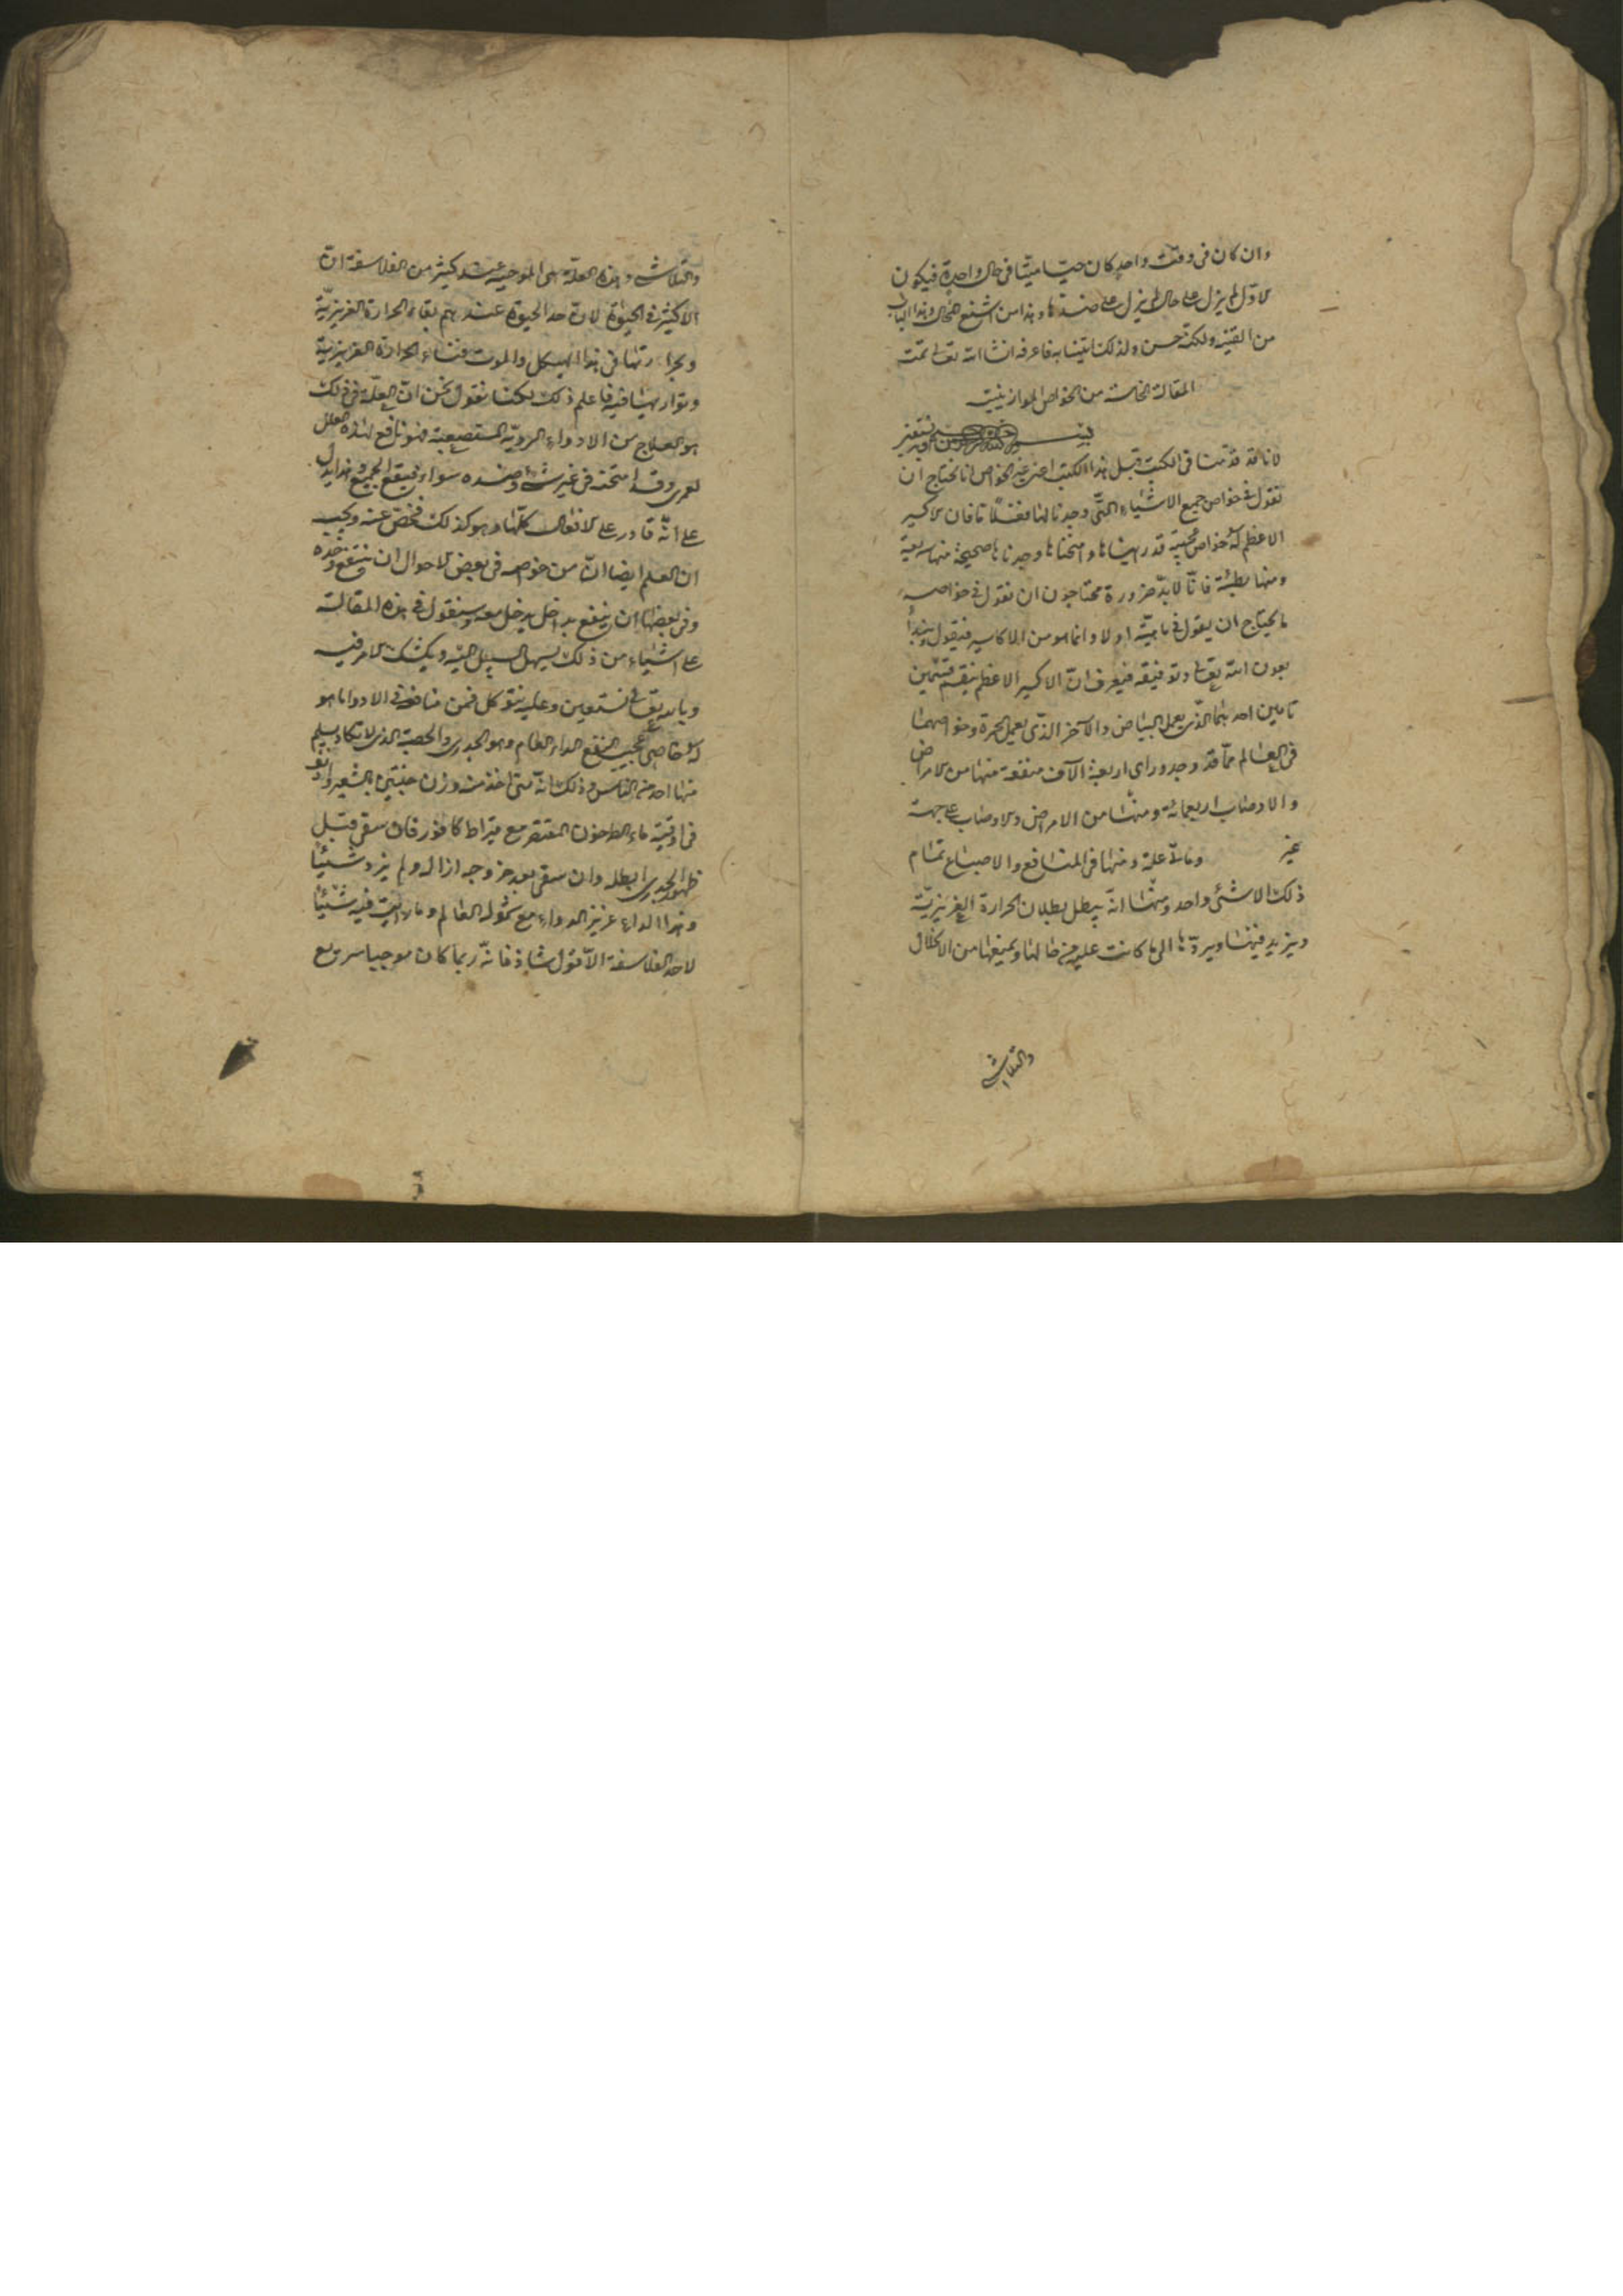 وان كان فى وقت واحد كان حيّا ميّتا فى حال واحدة فيكون
الاوّل لم يزل على حال لم يزل على ضدّها وهذا من اشنع المحال وهذا الباب
من القيد ولكنّه حسن ولذلك اتينا به فاعرفه انشا الله تعالى تمّت
المقالة الخامسة من الخواص الموازينيّة
بسم الله الرحمن الرحيم وبه نستعين
لانا قد قدّمنا فى الكتب قبل هذا الكتب اعنى الخواص انا نحتاج ان
نقول فى خواص جميع الاشياء الّتى وجدنا لها فعلًا تا فان الاكسير
الاعظم له خواص عجيبة قد رايناها وامتحناها وجدناها صحيحة منها سريعة
ومنها بطيئة فانّا لا بدّ ضرورة محتاجون ان نقول فى خواصه
ما يحتاج ان يقول فى ماهيّته اولا وانما هو من الاكاسير فنقول ونبدأ
بعون الله تعالى وتوفيقه فيعرف انّ الاكسير الاعظم ينقسم قسمين
تامين احدهما الّذى يعمل البياض والآخر الّذى يعمل الحمرة وخواصهما
فى العالم ممّا قد وجد وراى اربعة الآف منفعة منها من الامراض
والاوصاب اربعمائة ومنها من الامراض والاوصاب على جهة
غير وما لا علة ومنها فى المنافع والاصباغ تمام
ذلك الا شئى واحد ومنها انّه يبطل بطلان الحرارة الغريزيّة
ويزيد فيها ويردّها الى ما كانت عليه من حالها ويمنعها من الانحلال
والتلاشى
والتلاشى وهذه العلّة هى الموجبة عند كثير من الفلاسفة انّ
الاكثر فى الحيوة لانّ حد الحيوة عندهم بقاء الحرارة الغريزيّة
وحرارتها فى هذا الهيكل والموت فناء الحرارة الغريزيّة
وتواريها فيه فاعلم ذلك لكنا نقول نحن انّ العلّة فى ذلك
هو العلاج من الادواء الرديّة المستصعبة فهو نافع لهذه العلل
لعمرى وقد امتحنه فى غير شئ وضده سواء فينفع الجميع وهذا يدل
على انّه قادر على الافعال كلّها وهو كذلك فخص عنه ويجب
ان العلم ايضا انّ من خواصه فى بعض الاحوال ان ينفع وحده
وفى بعضها ان ينفع بداخل يدخل معه وسنقول فى هذه المقالة
على اشياء من ذلك ليسهل السبيل اليه ويكشف الامر فيه
وبالله تعالى نستعين وعليه نتوكل فمن منافعه فى الادوا ما هو
له خاصى عجيب النفع الداء العام وهو الجدرى والحصبة الذى لا تكاد يسلم
منها احد من الناس وذلك انّه متى اخذ منه وزن حبّتين بالشعير واذيف
فى اوقيّة ماء الطرخون المعتصر مع قيراط كافور فان سقى قبل
ظهور الجدرى ابطله وان سقى بعد خروجه ازاله ولم يزد شيئًا
وهذا الداء عزيز الدواء مع شموله العالم وما رايت فيه شيئًا
لاحد الفلاسفة الّا قول شاذ فانّه ربما كان موجبا سريع